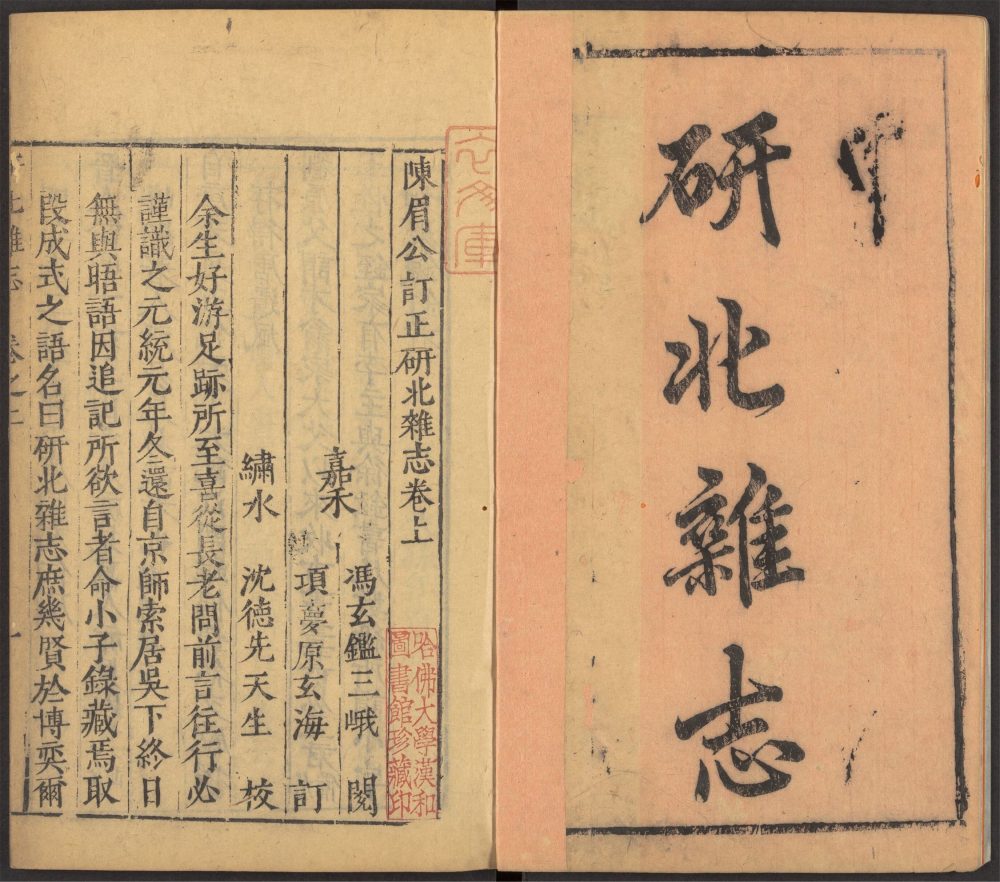 研北雜志
陳眉公訂正研北雜志卷上
嘉禾
馮玄鑑三峨 閱
項夢原玄海 訂
繡水 沈德先天生 校
余生好游足跡所至喜從長老問前言往行必
謹識之元統元年冬還自京師索居吳下終日
無與晤語因追記所欲言者命小子錄藏焉取
段成式之語名曰研北雜志庶幾賢於博奕爾
哈佛大學漢和
圖書館珍藏印